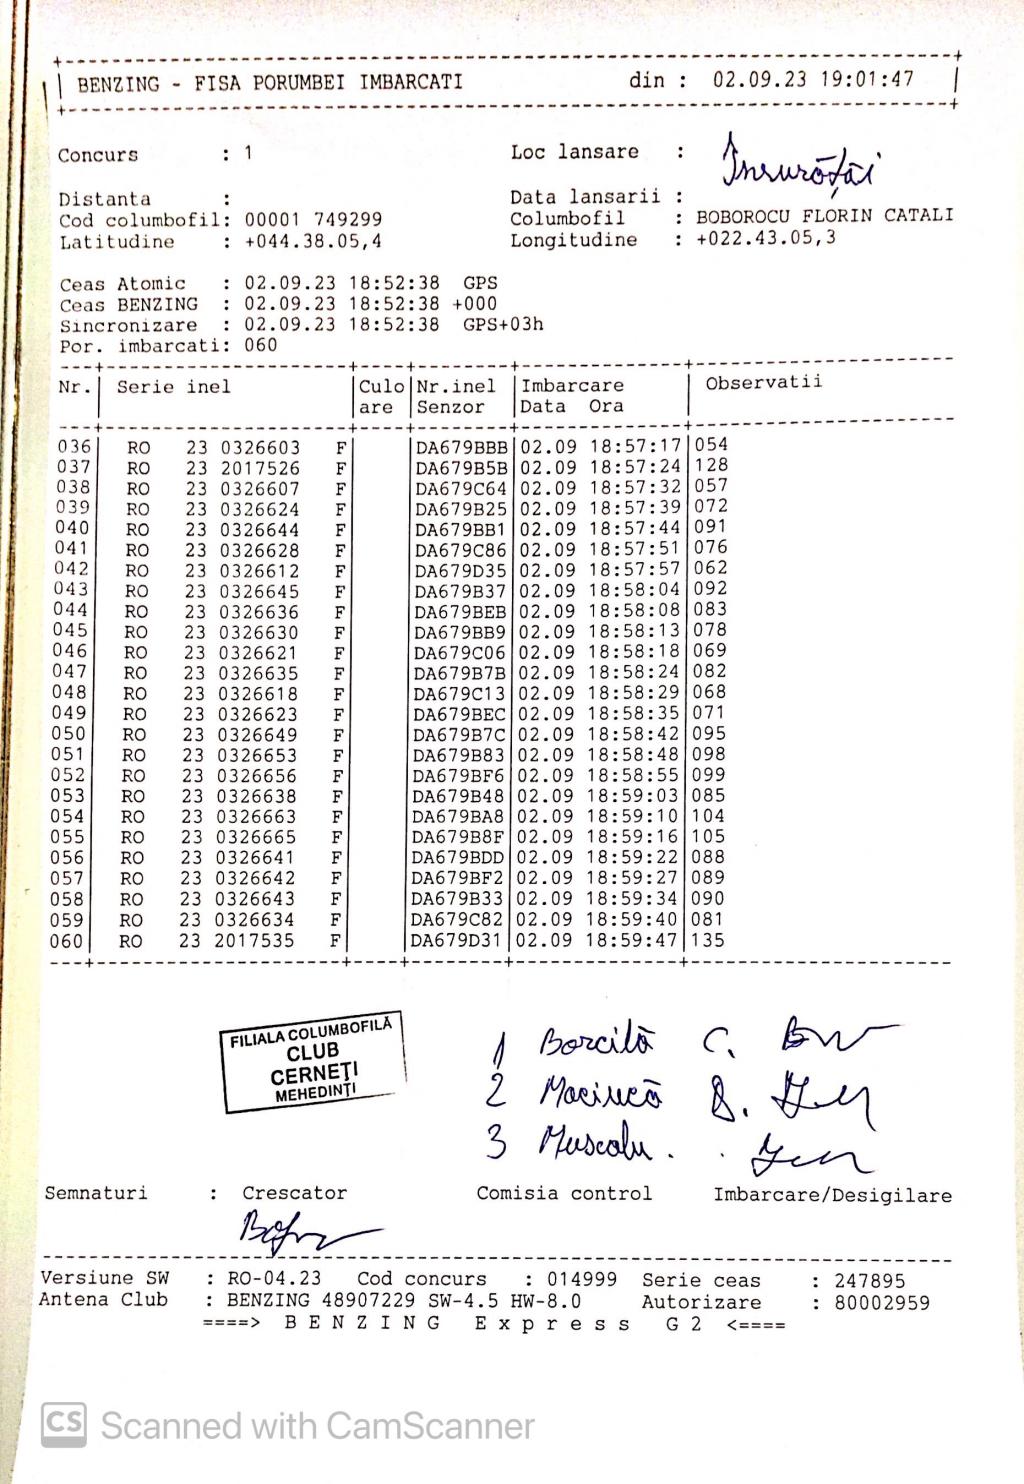 BENZING - FISA PORUMBEI IMBARCATI din : 02.09.23 19:01:47
Concurs : 1 Loc lansare : Însurăței
Distanta : Data lansarii :
Cod columbofil: 00001 749299 Columbofil : BOBOROCU FLORIN CATALI
Latitudine : +044.38.05,4 Longitudine : +022.43.05,3
Ceas Atomic : 02.09.23 18:52:38 GPS
Ceas BENZING : 02.09.23 18:52:38 +000
Sincronizare : 02.09.23 18:52:38 GPS+03h
Por. imbarcati: 060
Nr. Serie inel Culo Nr.inel Imbarcare Observatii
are Senzor Data Ora
036 RO 23 0326603 F DA679BBB 02.09 18:57:17 054
037 RO 23 2017526 F DA679B5B 02.09 18:57:24 128
038 RO 23 0326607 F DA679C64 02.09 18:57:32 057
039 RO 23 0326624 F DA679B25 02.09 18:57:39 072
040 RO 23 0326644 F DA679BB1 02.09 18:57:44 091
041 RO 23 0326628 F DA679C86 02.09 18:57:51 076
042 RO 23 0326612 F DA679D35 02.09 18:57:57 062
043 RO 23 0326645 F DA679B37 02.09 18:58:04 092
044 RO 23 0326636 F DA679BEB 02.09 18:58:08 083
045 RO 23 0326630 F DA679BB9 02.09 18:58:13 078
046 RO 23 0326621 F DA679C06 02.09 18:58:18 069
047 RO 23 0326635 F DA679B7B 02.09 18:58:24 082
048 RO 23 0326618 F DA679C13 02.09 18:58:29 068
049 RO 23 0326623 F DA679BEC 02.09 18:58:35 071
050 RO 23 0326649 F DA679B7C 02.09 18:58:42 095
051 RO 23 0326653 F DA679B83 02.09 18:58:48 098
052 RO 23 0326656 F DA679BF6 02.09 18:58:55 099
053 RO 23 0326638 F DA679B48 02.09 18:59:03 085
054 RO 23 0326663 F DA679BA8 02.09 18:59:10 104
055 RO 23 0326665 F DA679B8F 02.09 18:59:16 105
056 RO 23 0326641 F DA679BDD 02.09 18:59:22 088
057 RO 23 0326642 F DA679BF2 02.09 18:59:27 089
058 RO 23 0326643 F DA679B33 02.09 18:59:34 090
059 RO 23 0326634 F DA679C82 02.09 18:59:40 081
060 RO 23 2017535 F DA679D31 02.09 18:59:47 135
FILIALA COLUMBOFILĂ
CLUB
CERNEȚI
MEHEDINȚI
1 Borcilă C.
2 Maciucă D.
3 Muscalu
Semnaturi : Crescator Comisia control Imbarcare/Desigilare
Versiune SW : RO-04.23 Cod concurs : 014999 Serie ceas : 247895
Antena Club : BENZING 48907229 SW-4.5 HW-8.0 Autorizare : 80002959
====> B E N Z I N G E x p r e s s G 2 <====
CS Scanned with CamScanner